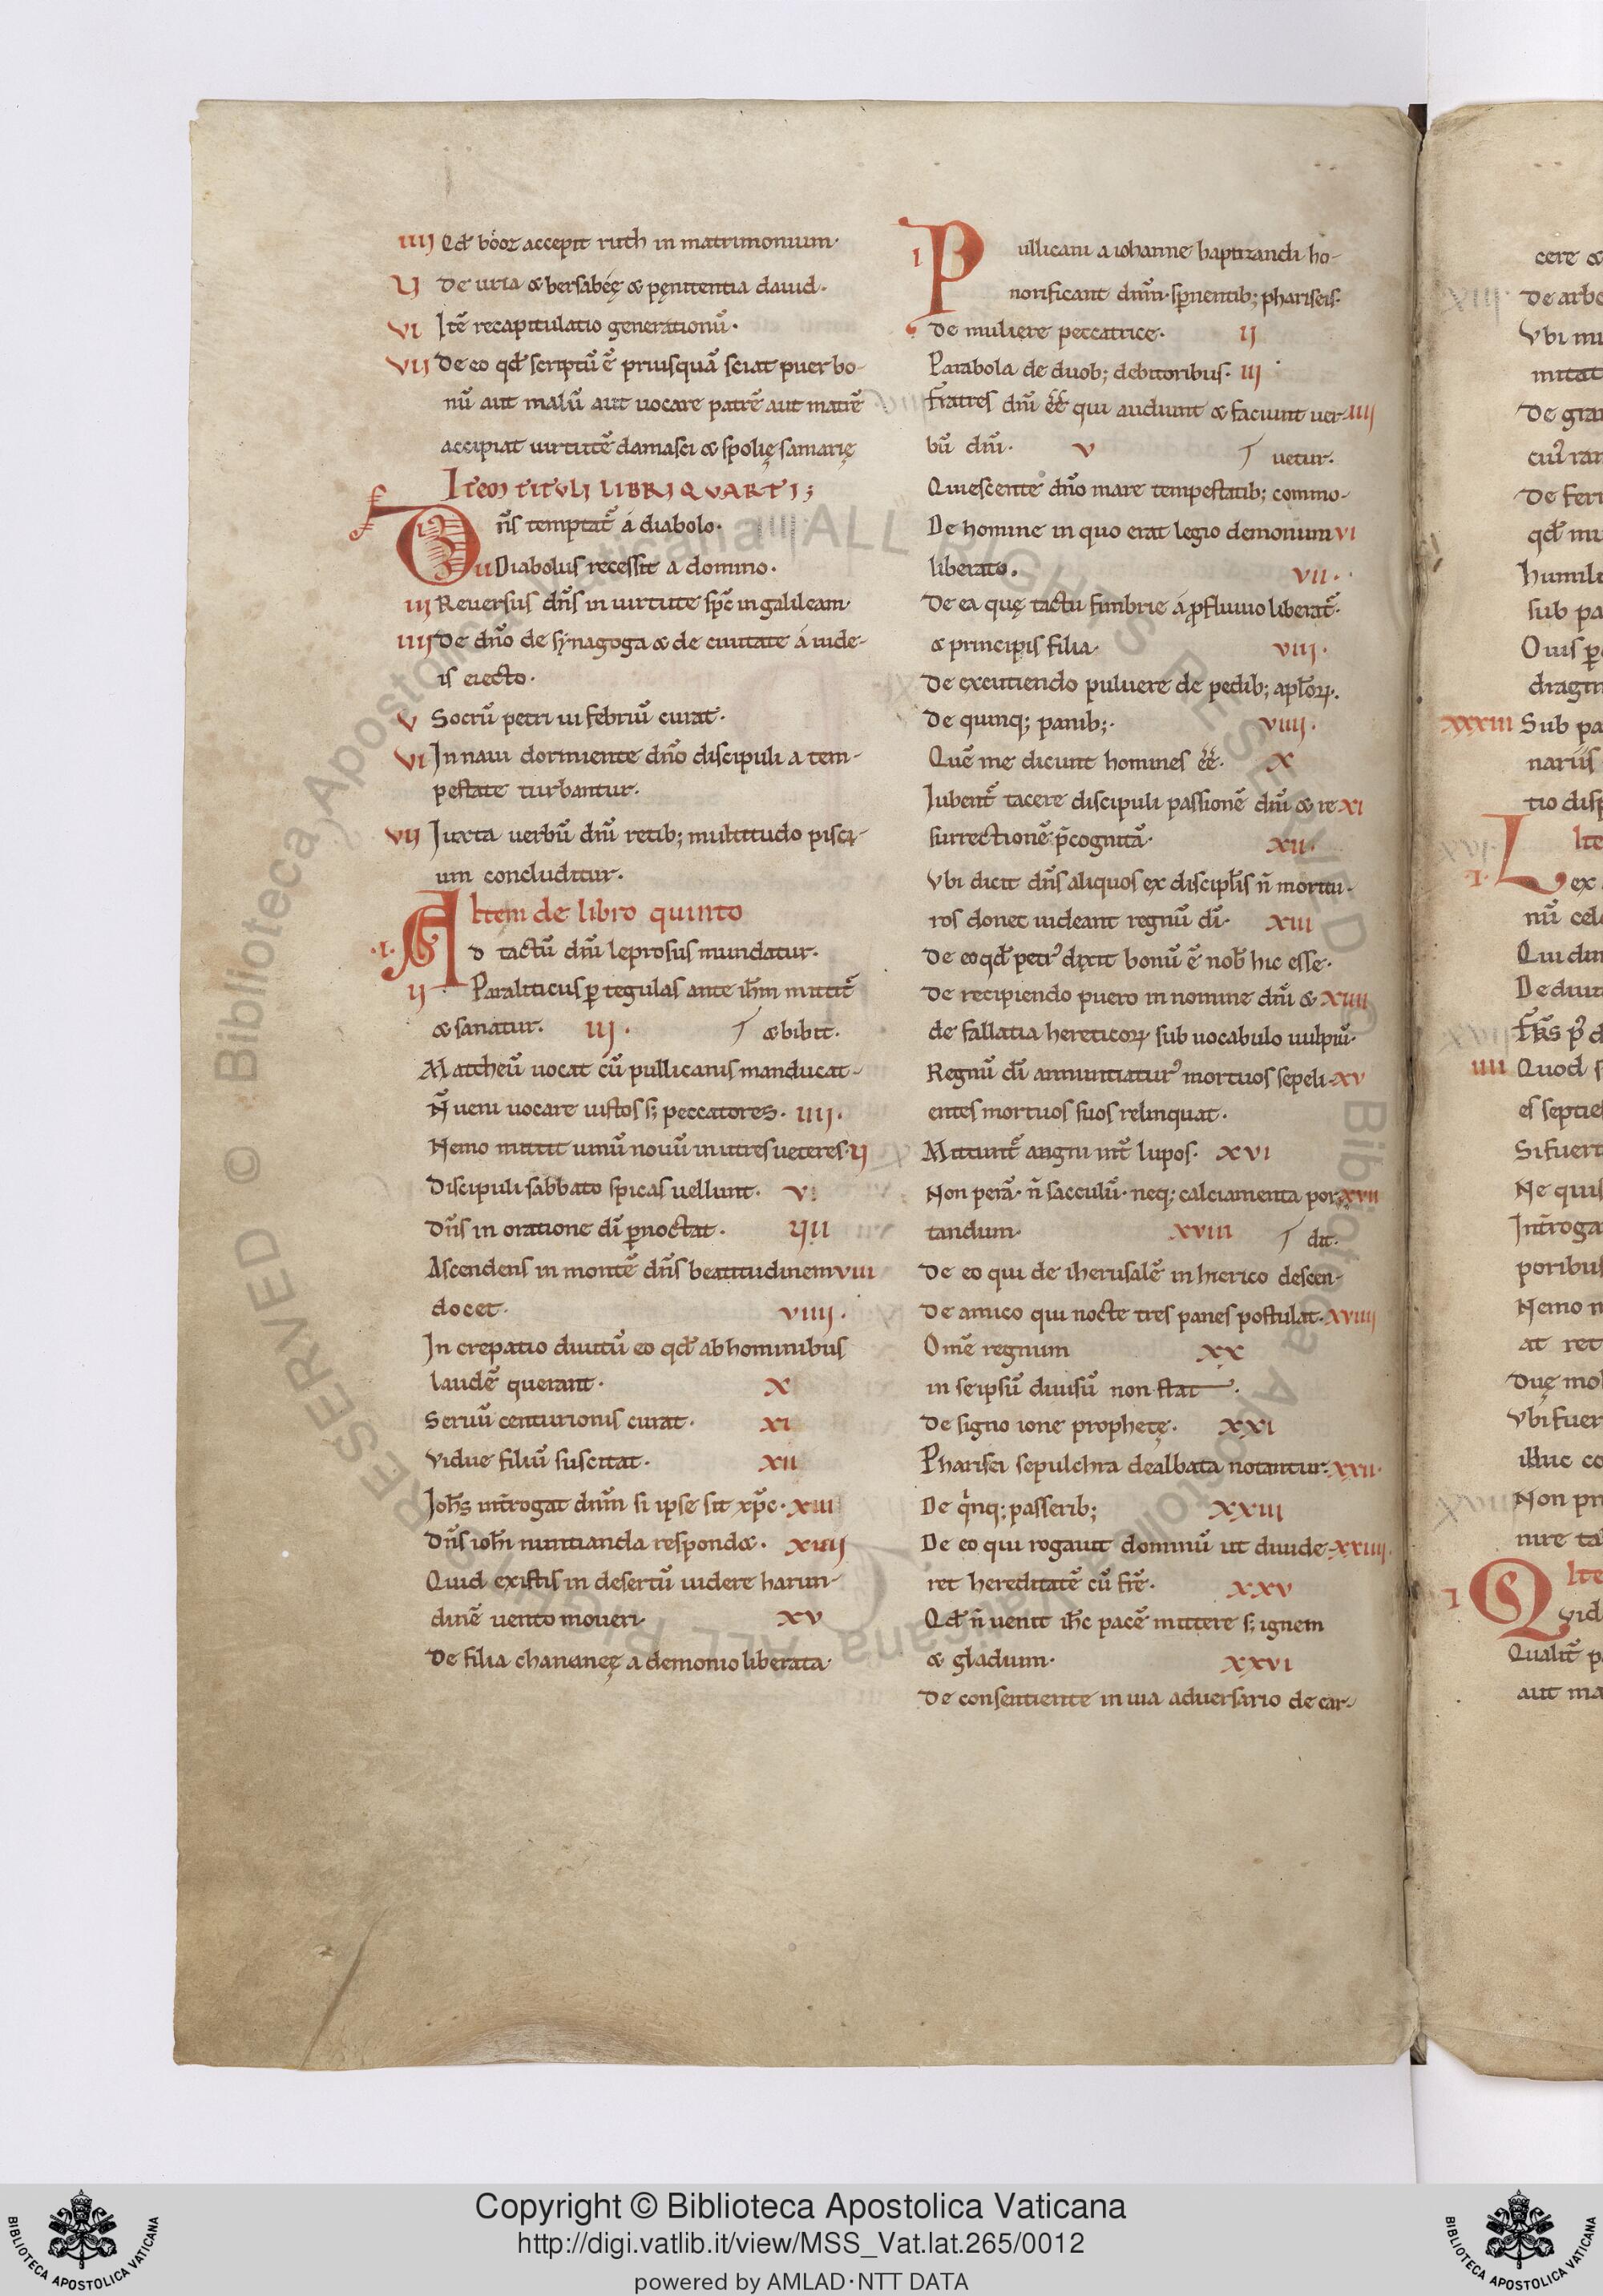 IIII Qđ bóoz accepit ruth in matrimonium·
V De uria & bersabéę & pęnitentia dauid·
VI Itē recapitulatio generationū·
VII De eo qđ scriptū ē priusquā sciat puer bo-
nū aut malū aut uocare patrē aut matrē
accipiat uirtutē damasci & spolię samarię
ITEM TITULI LIBRI QUARTI;
I Dn̄s temptat̄ á diabolo·
II Diabolus recessit a domino·
III Reuersus dn̄s in uirtute sp̄c in galileam·
IIII De dn̄o de synagoga & de ciuitate á iude-
is eiecto·
V Socrū petri ui febriū curat·
VI In naui dormiente dn̄o discipuli a tem-
pestate turbantur·
VII Iuxta uerbū dn̄i retib; multitudo pisci-
um concluditur·
Item de libro quinto
·I· Ad tactū dn̄i leprosus mundatur·
II Paraliticus ꝑ tegulas ante ih̄m mittit̄
& sanatur· III· & bibit·
Matheū uocat cū pullicanis manducat-
N̄ ueni uocare iustos s; peccatores· IIII·
Nemo mittit uinū nouū in utres ueteres· V
Discipuli sabbato spicas uellunt· VI
Dn̄s in oratione dī ꝑnoctat· VII
Ascendens in montē dn̄s beatitudinem VIII
docet· VIIII·
In crepatio diuitū eo qđ ab hominibus
laudē querant· X
Seruū centurionis curat· XI
Vidue filiū suscitat· XII
Ioh̄s int̄rogat dn̄m si ipse sit xp̄c· XIII
Dn̄s ioh̄i nuntianda respond&· XIIII
Quid existis in desertū uidere harun-
dinē uento moueri· XV
De filia chananeę a demonio liberata·
I Pullicani a iohanne baptizandi ho-
norificant dn̄m· sꝑnentib; phariseis·
De muliere peccatrice· II
Parabola de duob; debitoribus· III
Fratres dn̄i ēē qui audiunt & faciunt uer- IIII
bū dn̄i· V uetur·
Quiescente dn̄o mare tempestatib; commo-
De homine in quo erat legio demonum VI
liberato· VII·
De ea quę tactu fimbrie á ꝓfluuio liberat̄·
& principis filia· VIII·
De excutiendo puluere de pedib; apl̄oꝝ·
De quinq; panib;· VIIII·
Quē me dicunt homines ēē· X
Iubent̄ tacere discipuli passionē dn̄i & re XI
surrectionē p̄cognitā· XII·
Vbi dicit dn̄s aliquos ex discipl̄is n̄ moritu-
ros donec uideant regnū dī· XIII
De eo qđ petr᾽ dixit bonū ē nob̄ hic esse·
De recipiendo puero in nomine dn̄i & XIIII
de fallatia hereticoꝝ sub uocabulo uulpiū·
Regnū dī annuntiatur᾽ mortuos sepeli- XV
entes mortuos suos relinquat·
Mittunt̄ angni int̄ lupos· XVI
Non perā· n̄ sacculū· neq; calciamenta por XVII
tandum· XVIII dit·
De eo qui de iherusalē in hierico descen-
De amico qui nocte tres panes postulat· XVIIII
Om̄e regnum XX
in seipsū diuisū non stat·
De signo ione prophetę· XXI
Pharisei sepulchra dealbata notantur· XXII·
De qinq; passerib; XXIII
De eo qui rogauit dominū ut diuide XXIIII
ret hereditatē cū fr̄e· XXV
Qđ n̄ uenit ih̄c pacē mittere s; ignem
& gladium· XXVI
De consentiente in uia aduersario de car-
cere &
De arbo
Vbi mu
mitat
De gra
cui᾽ ra
De fer
qđ mu
humili
sub pa
Ouis ꝑ
dragm
XXXIII Sub pa
nariis
tio dis
Ite
I· Lex
nū cel
Qui dim
De diui
IIII Quod s
es septie
Si fuer
Ne quis
Int̄roga
poribus
Nemo n
at ret
Duę mol
Vbi fuer
illuc co
Non pr
nire ta
Ite
I Quid
Qualit̄ p
aut ma
© Biblioteca Apostolica Vaticana ALL RIGHTS RESERVED
Copyright © Biblioteca Apostolica Vaticana
http://digi.vatlib.it/view/MSS_Vat.lat.265/0012
powered by AMLAD·NTT DATA
BIBLIOTECA APOSTOLICA VATICANA
BIBLIOTECA APOSTOLICA VATICANA